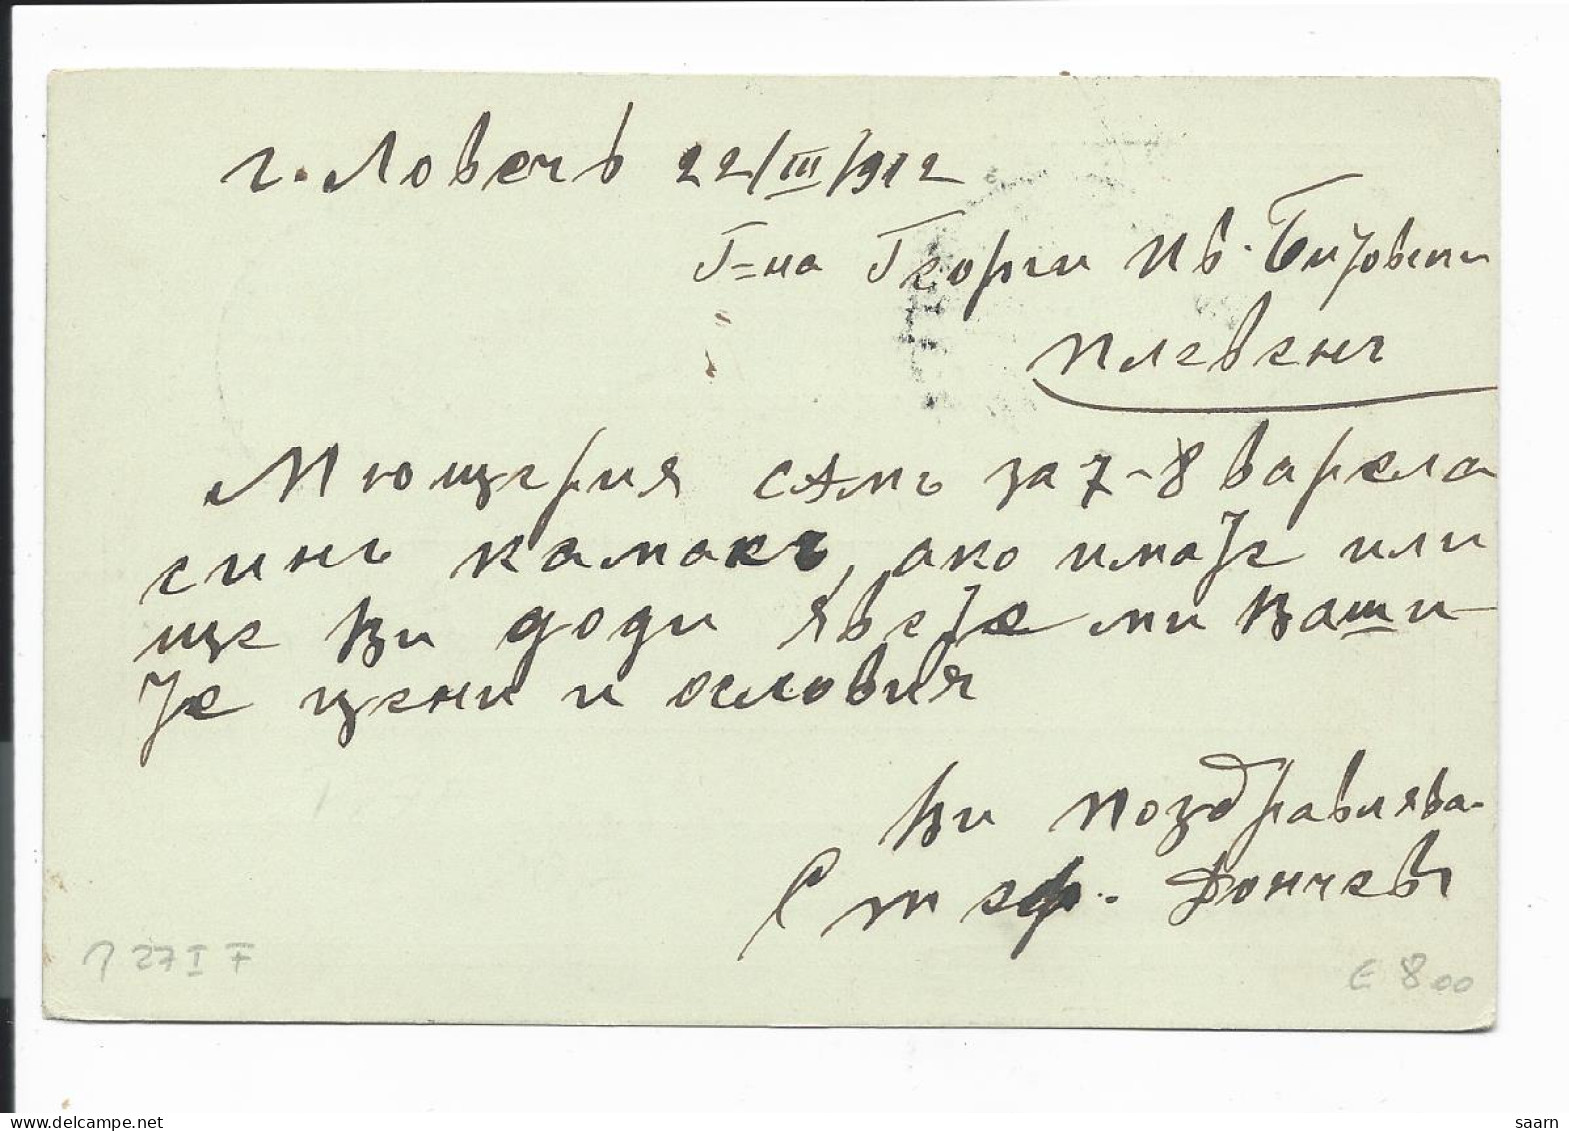 г. Ловечъ 22/III/912
Г=на Георги Ив. Битовски
Плевенъ
Мющерия сАмъ за 7-8 варела
синь камакъ, ако имате или
ще Ви доди явете ми Ваши-
те цени и условия
Ви поздравява
Стеф. Дончевъ
P 27 I F
€ 8 00
saarn